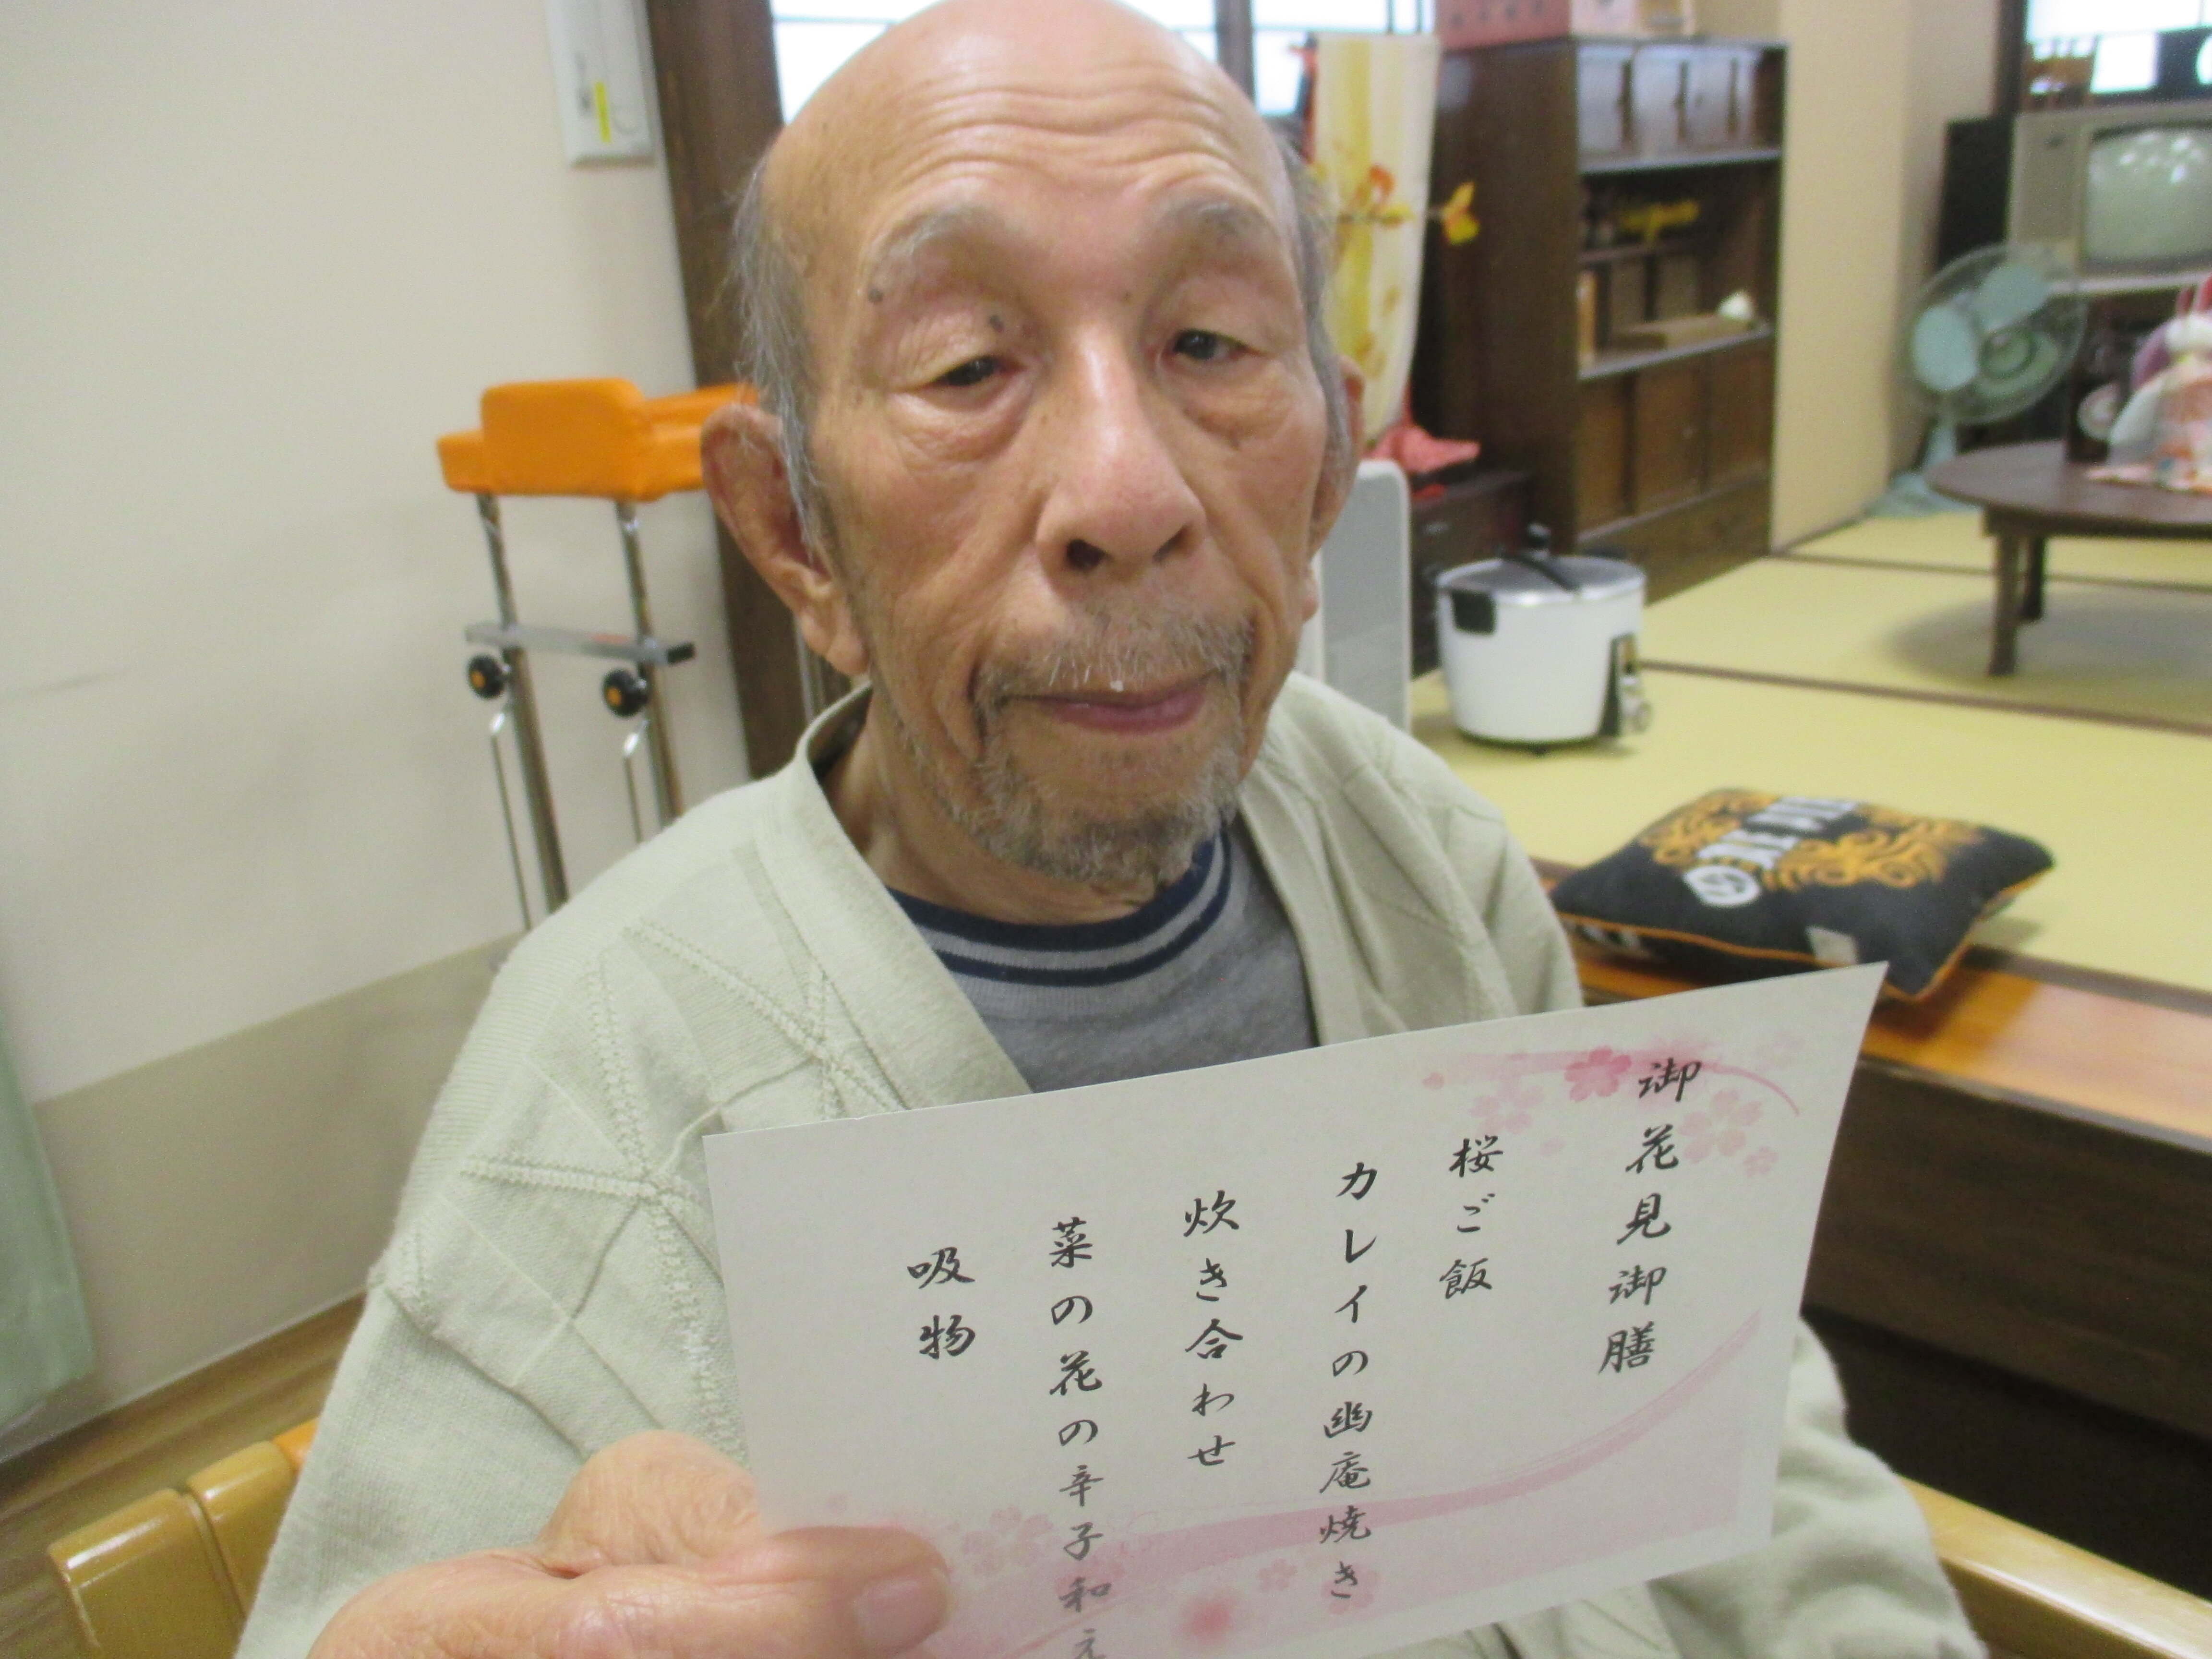 御花見御膳
桜ご飯
カレイの幽庵焼き
炊き合わせ
菜の花の辛子和え
吸物